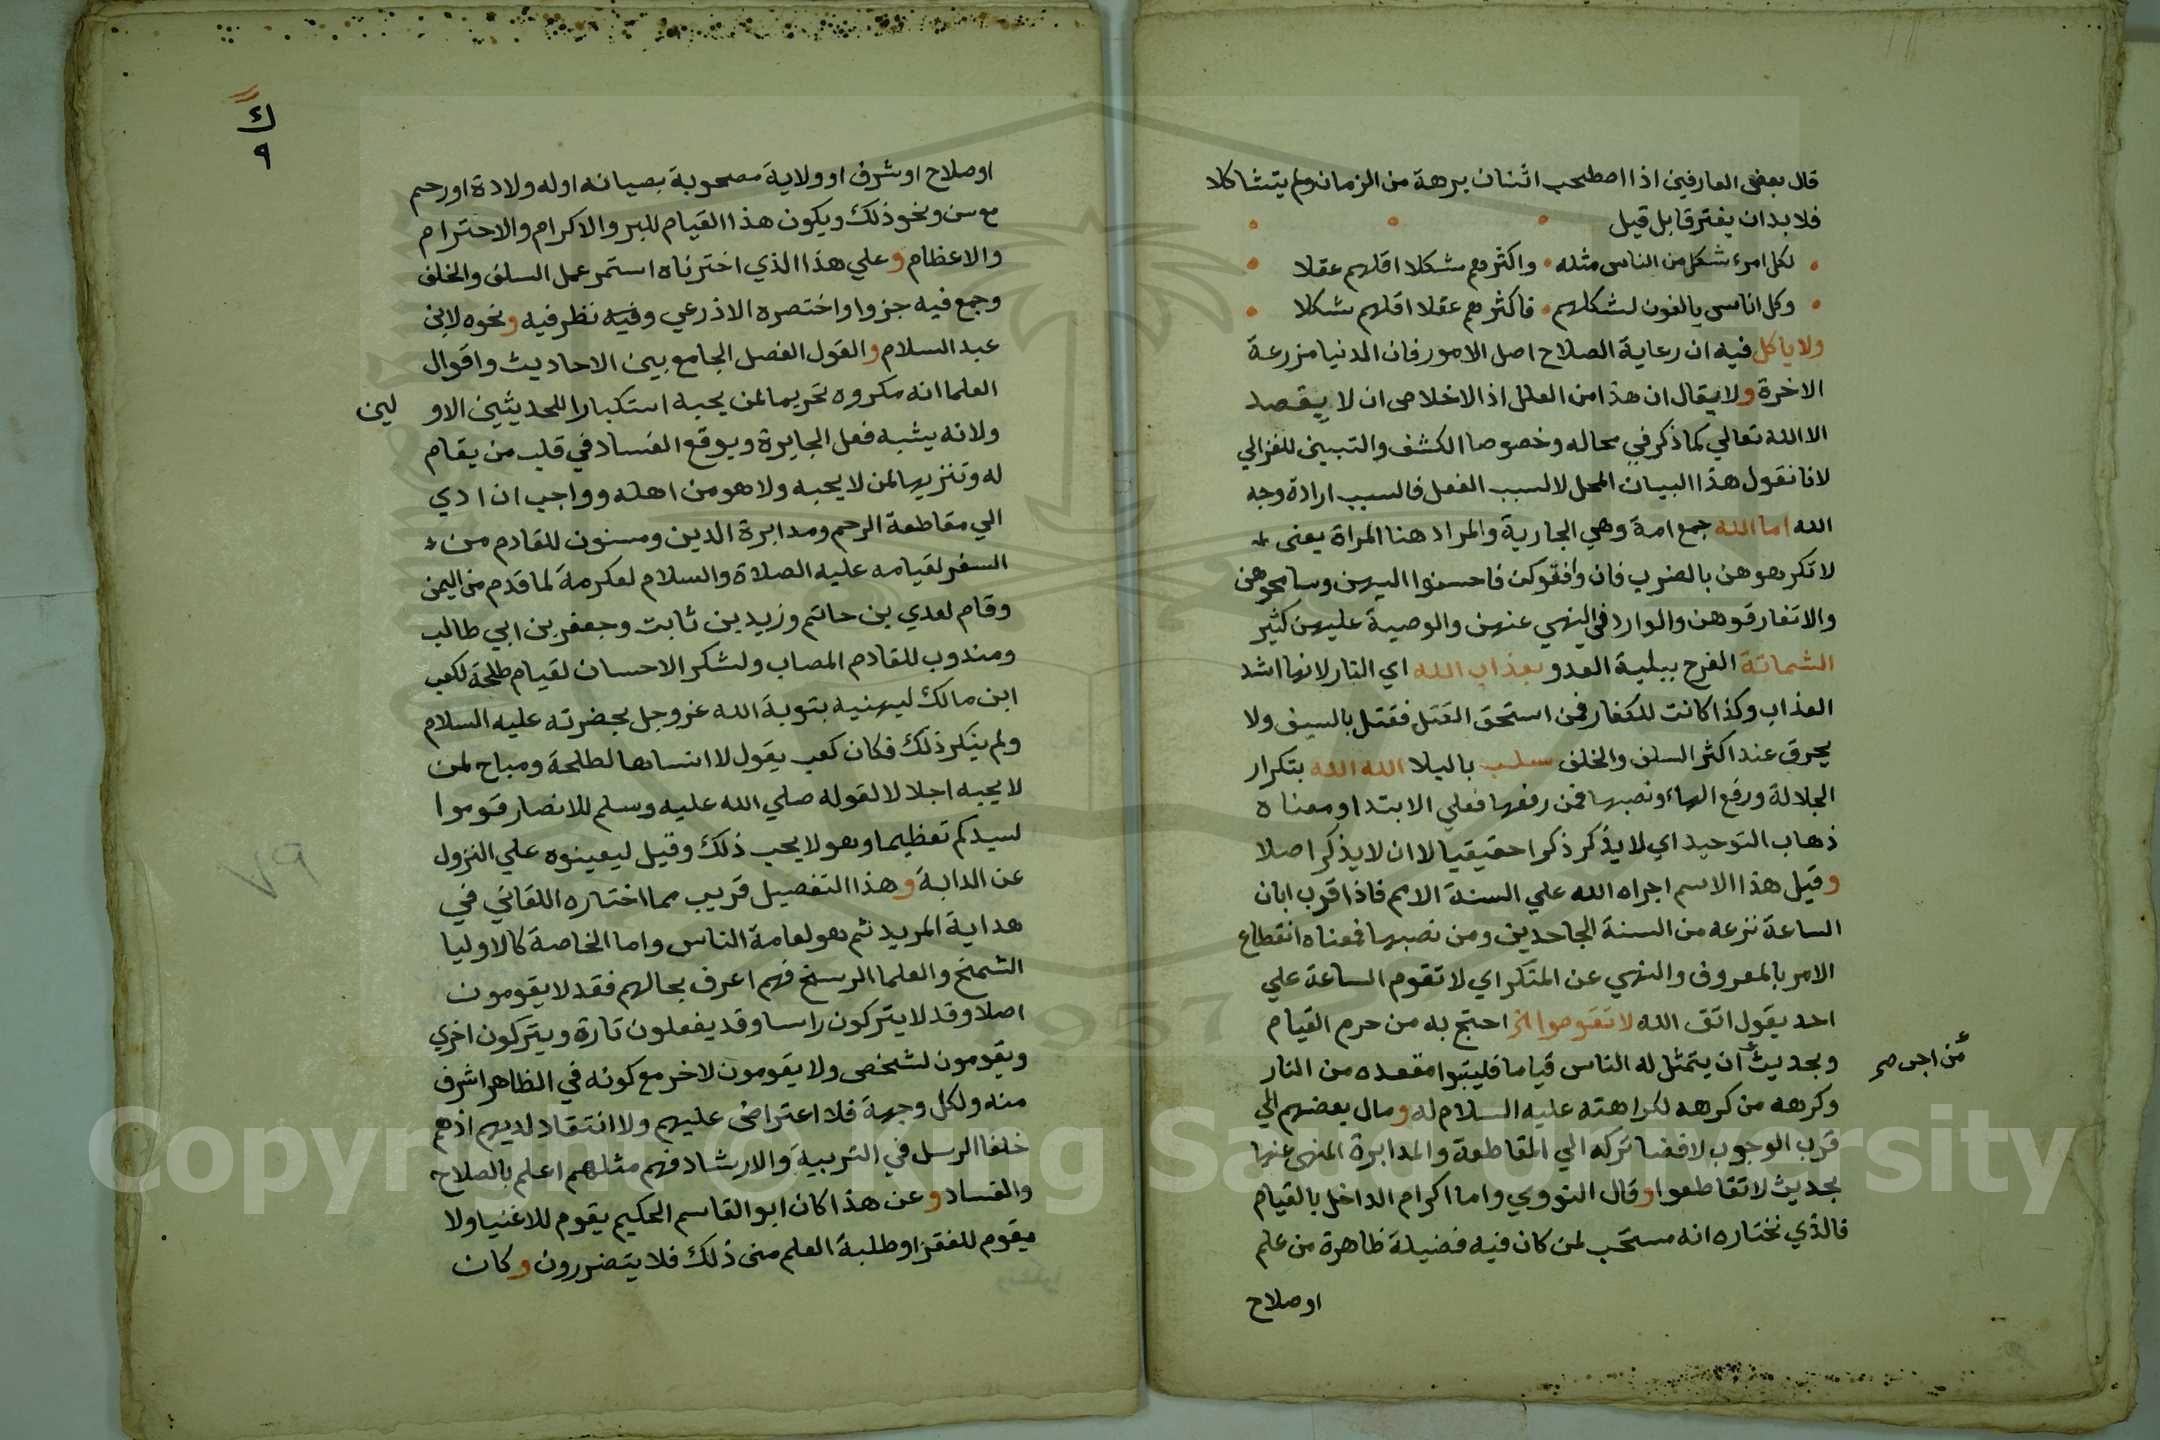 قال بعض العارفين اذا اصطحب اثنان برهة من الزمان ولم يتشاكلا
فلا بد ان يفترقا بل قيل
لكل امرء شكل من الناس مثله واكثرهم شكلا اقلهم عقلا
وكل اناس يالفون لشكلهم فاكثرهم عقلا اقلهم شكلا
ولا ياكل فيه ان رعاية الصلاح اصل الامور فان الدنيا مزرعة
الاخرة ولا يقال ان هذا من العلل اذ الاخلاص ان لا يقصد
الا الله تعالي كما ذكر في محاله وخصوصا الكشف والتبيين للغزالي
لانا نقول هذا البيان المحل لا لسبب الفعل فالسبب ارادة وجه
الله اما الله جمع امة وهي الجارية والمراد هنا المراة يعني
لا تكرهوهن بالضرب فان وافقوكن فاحسنوا اليهن وسامحوهن
والا تفارقوهن والوارد في النهي عنهن والوصية عليهن كثير
الشماتة الفرح ببلية العدو بعذاب الله اي النار لانها اشد
العذاب وكذا كانت للكفار فمن استحق القتل فقتل بالسيف ولا
يحرق عند اكثر السلف والخلف سلب باليلا الله الله بتكرار
الجلالة ورفع الهاء ونصبها فمن رفعها فعلي الابتدا ومعناه
ذهاب التوحيد اي لا يذكر ذكرا حقيقيا لا ان لا يذكر اصلا
وقيل هذا الاسم اجراه الله علي السنة الامم فاذا قرب ابان
الساعة نزعه من السنة الجاحدين ومن نصبها فمعناه انقطاع
الامر بالمعروف والنهي عن المنكر اي لا تقوم الساعة علي
احد يقول اتق الله لا تقوموا الخ احتج به من حرم القيام
وبحديث ان يتمثل له الناس قياما فليتبوا مقعده من النار
من احب صح
وكرهه من كرهه لكراهته عليه السلام له ومال بعضهم الي
قرب الوجوب لاقضا تركه الي المقاطعة والمدابرة المنهى عنها
بحديث لا تقاطعوا وقال النووي واما اكرام الداخل بالقيام
فالذي نختاره انه مستحب لمن كان فيه فضيلة ظاهرة من علم
او صلاح
ك
٩
او صلاح او شرف او ولاية مصحوبة بصيانه اوله ولادة او رحم
مع سن ونحو ذلك ويكون هذا القيام للبر والاكرام والاحترام
والاعظام وعلي هذا الذي اخترناه استمر عمل السلف والخلف
وجمع فيه جزوا واختصره الاذرعي وفيه نظر فيه ونحوه لابن
عبد السلام والقول الفصل الجامع بين الاحاديث واقوال
العلما انه مكروه تحريما لمن يحبه استكبارا للحديثين الاو لين
ولانه يشبه فعل الجابرة ويوقع الفساد في قلب من يقام
له وتنزيها لمن لا يحبه ولا هو من اهله وواجب ان ادي
الي مقاطعة الرحم ومدابرة الدين ومسنون للقادم من
السفر لقيامه عليه الصلاة والسلام لعكرمة لما قدم من اليمن
وقام لعدي بن حاتم وزيد بن ثابت وجعفر بن ابي طالب
ومندوب للقادم المصاب ولشكر الاحسان لقيام طلحة لكعب
ابن مالك ليهنيه بتوبة الله عز وجل بحضرته عليه السلام
ولم ينكر ذلك فكان كعب يقول لا انساها لطلحة ومباح لمن
لا يحبه اجلالا لقوله صلي الله عليه وسلم للانصار قوموا
لسيدكم تعظيما وهو لا يحب ذلك وقيل ليعينوه علي النزول
عن الدابة وهذا التفصيل قريب مما اختاره اللقاني في
هداية المريد ثم هو لعامة الناس واما الخاصة كالاوليا
الشمخ والعلما الرسخ فهم اعرف بحالهم فقد لا يقومون
اصلا وقد لا يتركون راسا وقد يفعلون تارة ويتركون اخري
ويقومون لشخص ولا يقومون لاخر مع كونه في الظاهر اشرف
منه ولكل وجهة فلا اعتراض عليهم ولا انتقاد لديهم اذ هم
خلفا الرسل في التربية والارشاد فهم مثلهم اعلم بالصلاح
والفساد وعن هذا كان ابو القاسم الحكيم يقوم للاغنيا ولا
يقوم للفقرا وطلبة العلم منى ذلك فلا يتضررون وكان
٧٩
Copyright © King Saud University
1957